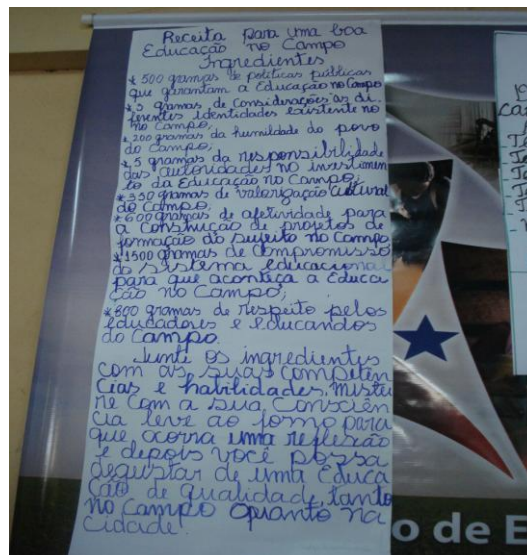 Receita para uma boa
Educação no Campo
Ingredientes
* 500 gramas de políticas públicas
que garantam a Educação no Campo
* 5 gramas de considerações as di
ferentes identidades existente no
no Campo;
* 200 gramas da humildade do povo
do Campo;
* 5 gramas da responsibilidade
das autoridades no investimen
to da Educação no Campo;
* 350 gramas de valorização Cultural
do Campo;
* 600 gramas de afetividade para
a construção de projetos de
formação do sujeito no Campo
* 1500 gramas de Compromisso
do sistema educacional
para que aconteça a Educa
ção no Campo;
* 800 gramas de respeito pelos
educadores e educandos
do Campo.
Junte os ingredientes
com as suas competên
cias e habilidades, mistu
re com a sua Consciên
cia leve ao forno para
que ocorra uma reflexão
e depois você possa
degustar de uma Educa
ção de qualidade tanto
no Campo quanto na
Cidade.
o de E